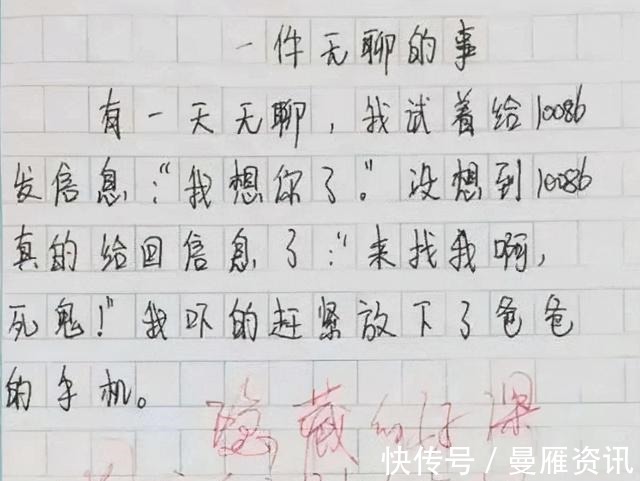 一件无聊的事
有一天无聊，我试着给10086
发信息：“我想你了。”没想到10086
真的给回信息了：“来找我啊，
死鬼！”我吓的赶紧放下了爸爸
的手机。
隐藏的好深
快传号／曼雁资讯